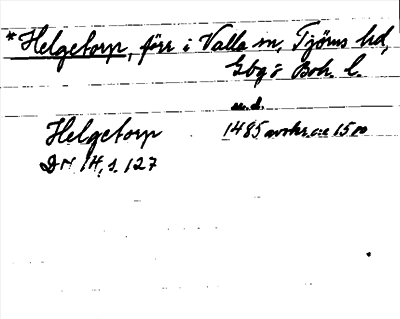 *Helgetorp, förr i Valla sn, Tjörns hd,
Gbg o Boh. l.
u.d.
Helgetorp 1485 avskr. ca 1500
DN 14, s. 127